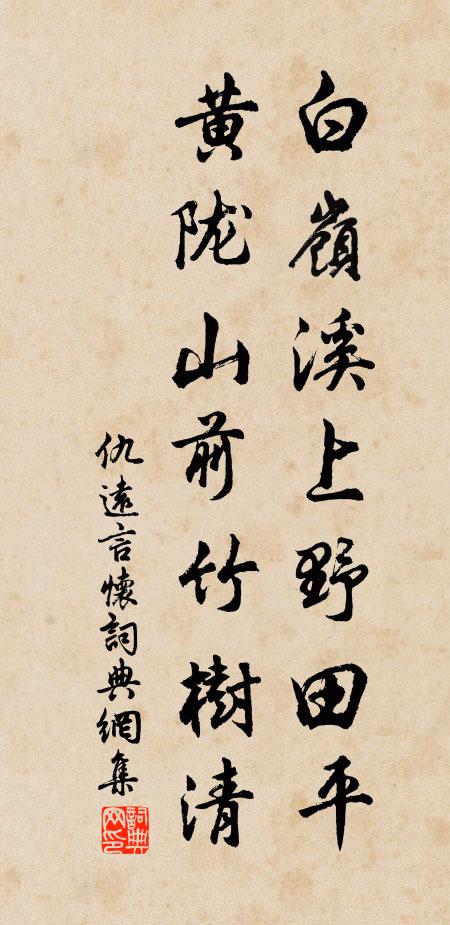 白嶺溪上野田平
黄陇山前竹樹清
仇遠言懷詞典網集
詞典网印